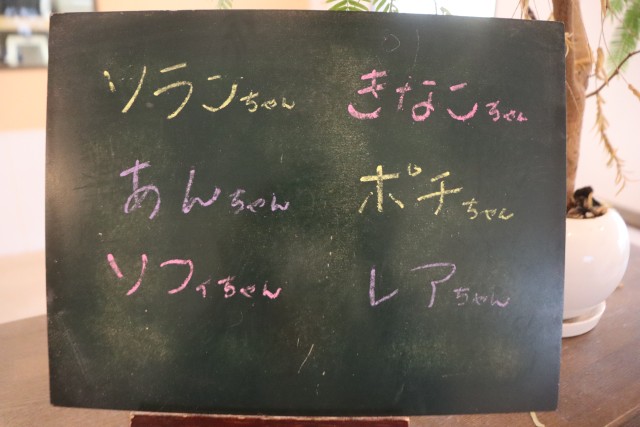 ソランちゃん きなこちゃん
あんちゃん ポチちゃん
ソフィちゃん レアちゃん